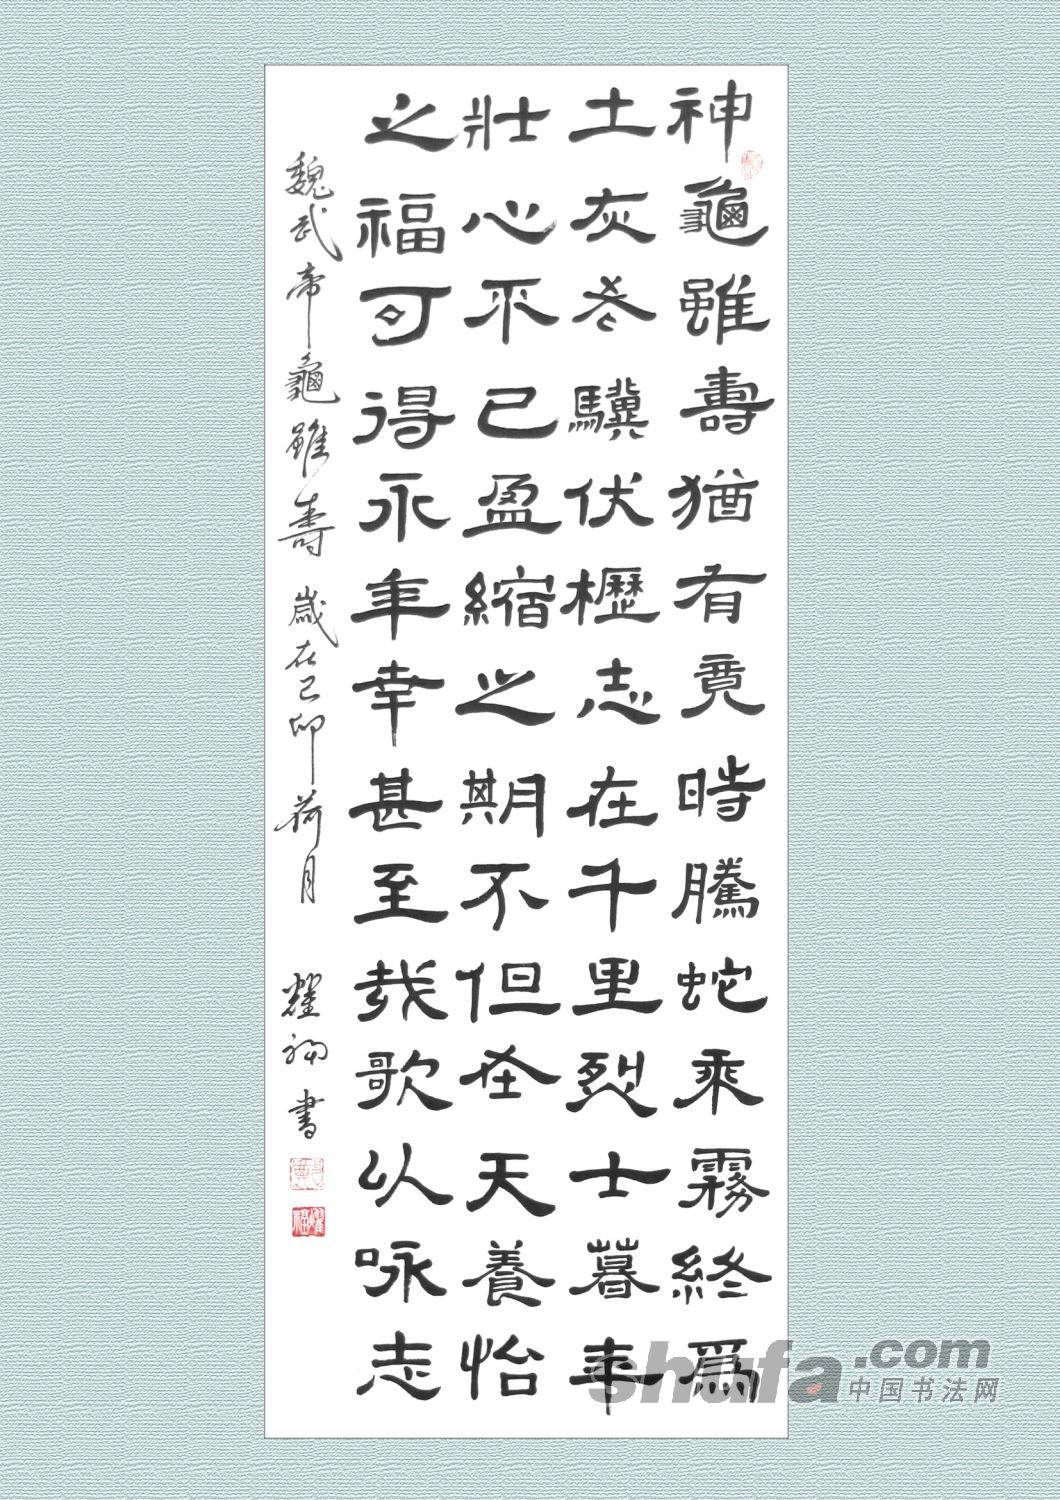 神龜雖壽猶有竟時騰蛇乘霧終爲
土灰老驥伏櫪志在千里烈士暮年
壯心不已盈縮之期不但在天養怡
之福可得永年幸甚至哉歌以咏志
魏武帝龜雖壽 歲在己卯荷月 耀福書
耀福
shufa.com
中国书法网